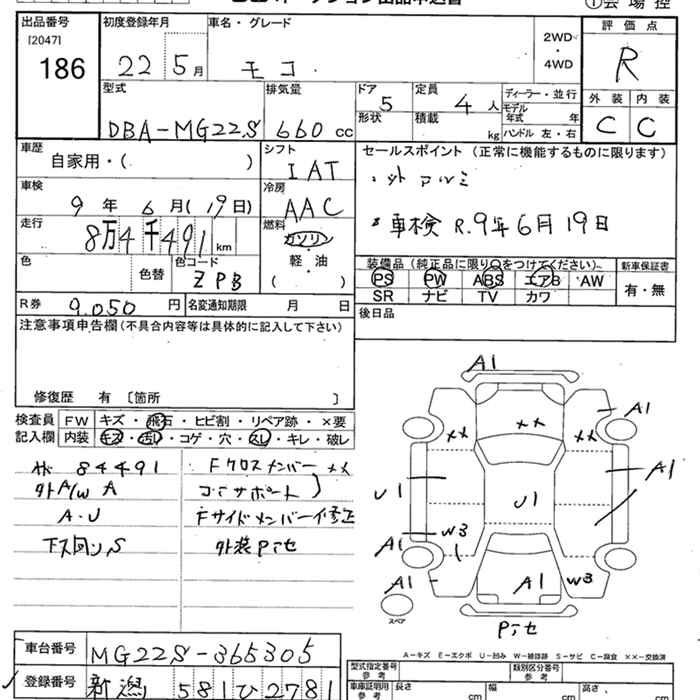 ①会場控
出品番号 初度登録年月 車名・グレード 評価点
[2047]
186 22 5月 モコ 2WD・4WD R
型式 排気量 ドア 定員 ディーラー・並行 外装 内装
DBA-MG22S 660cc 5 4人 モデル年式 年 C C
形状 積載 kg ハンドル 左・右
車歴 シフト セールスポイント(正常に機能するものに限ります)
自家用・( ) IAT
・外アルミ
車検 冷房
9年6月(19日) AAC
・車検 R.9年6月19日
走行 燃料
8万4千491km ガソリン
軽・油
( )
色 色替 色コード
ZPB
装備品(純正品に限り○をつけてください) 新車保証書
PS PW ABS エアB AW 有・無
SR ナビ TV カワ
R券 9,050円 名変通知期限 月 日 後日品
注意事項申告欄(不具合内容等は具体的に記入して下さい)
修復歴 有 〔箇所 〕
検査員 FW キズ・飛石・ヒビ割・リペア跡・×要
記入欄 内装 キズ・汚レ・コゲ・穴・スレ・キレ・破レ
84491 Fクロスメンバー ××
外A/W A コアサポート
A・U Fサイドメンバー修正
下ス回りS 外装Pテセ
A1
A1
×× ×× ××
U1 U1 A1
W3
A1
A1 A1 W3
スペア
Pテセ
A-キズ E-エクボ U-凹み W-補修跡 S-サビ C-腐食 ××-交換済
車台番号 MG22S-365305
登録番号 新潟 581 ひ 2781
型式指定番号 参考 類別区分番号 参考
車庫証明用 参考 長さ cm 幅 cm 高さ cm